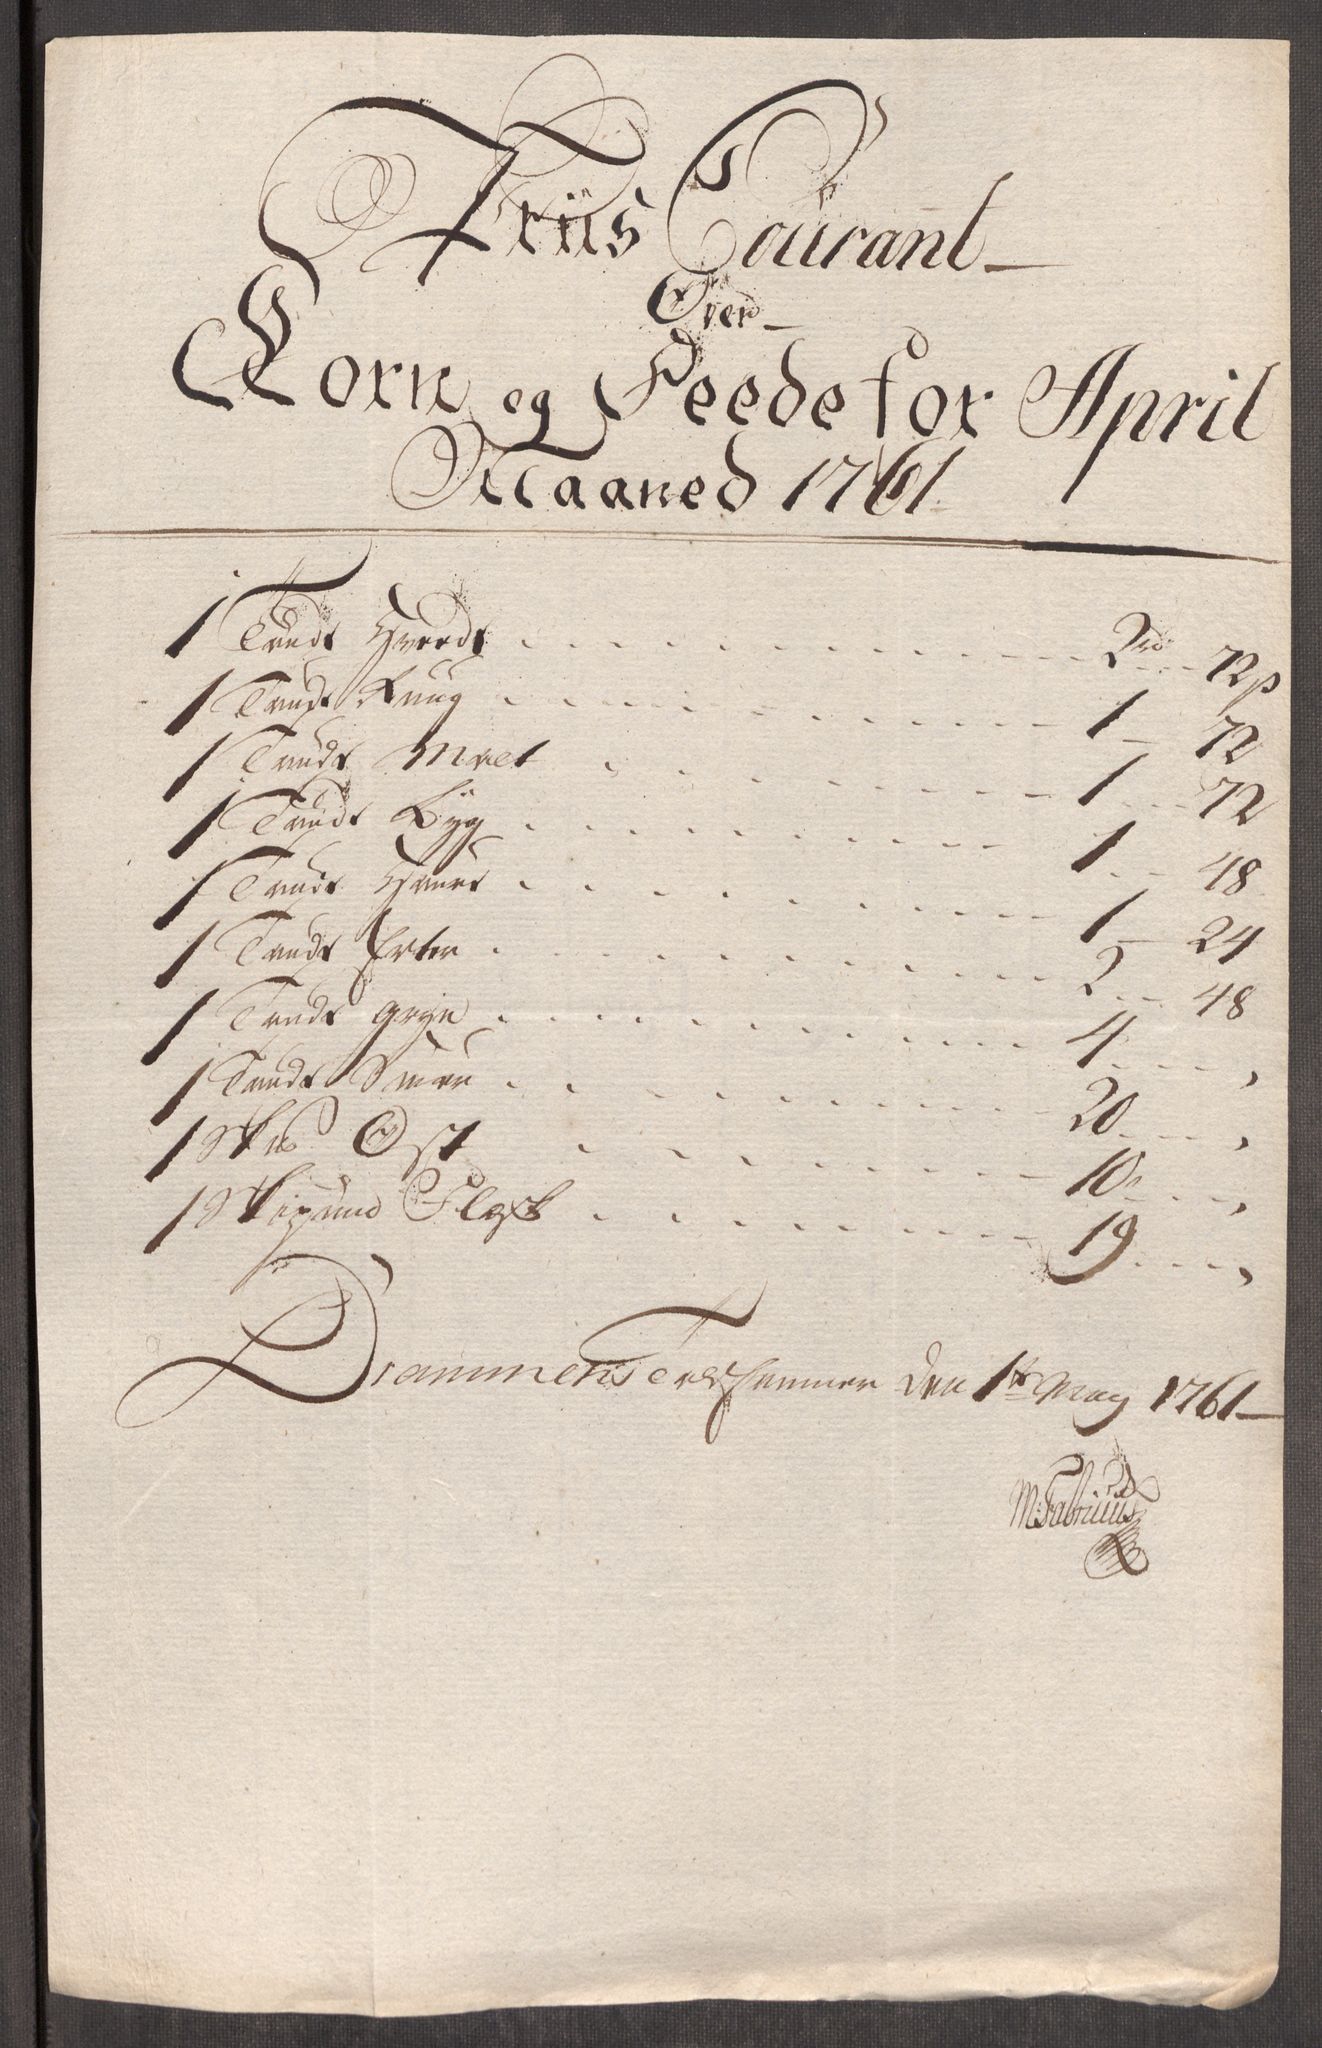 Priis Courant
Over
Korn og Feede for April
Maaned 1761
1 Tønde Hvede 2rd 72s
1 Tønde Rug 1 72
1 Tønde Malt 1 72
1 Tønde Byg 1 48
1 Tønde Havre 1 24
1 Tønde Erter 2 48
1 Tønde Gryn 4 "
1 Tønde Smør 20 "
1 Sk℔ Ost 10 "
1 Skippund Flesk 19 "
Drammens Toldkammer den 1te May 1761
MFabritius